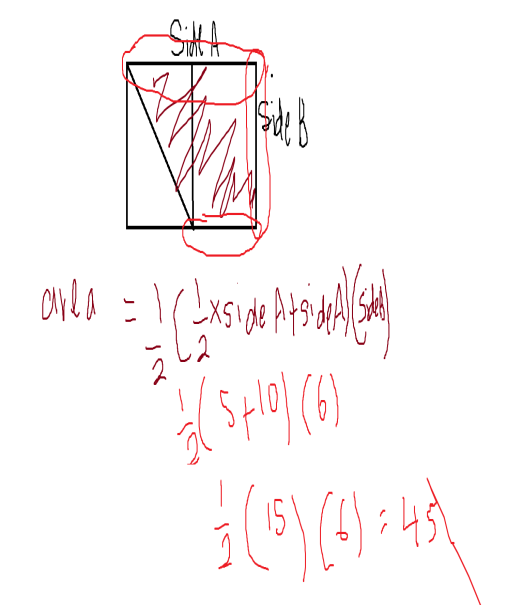 Side A
Side B
area = 1/2 (1/2 x side A + side A)(side B)
1/2 (5+10)(6)
1/2 (15)(6) = 45